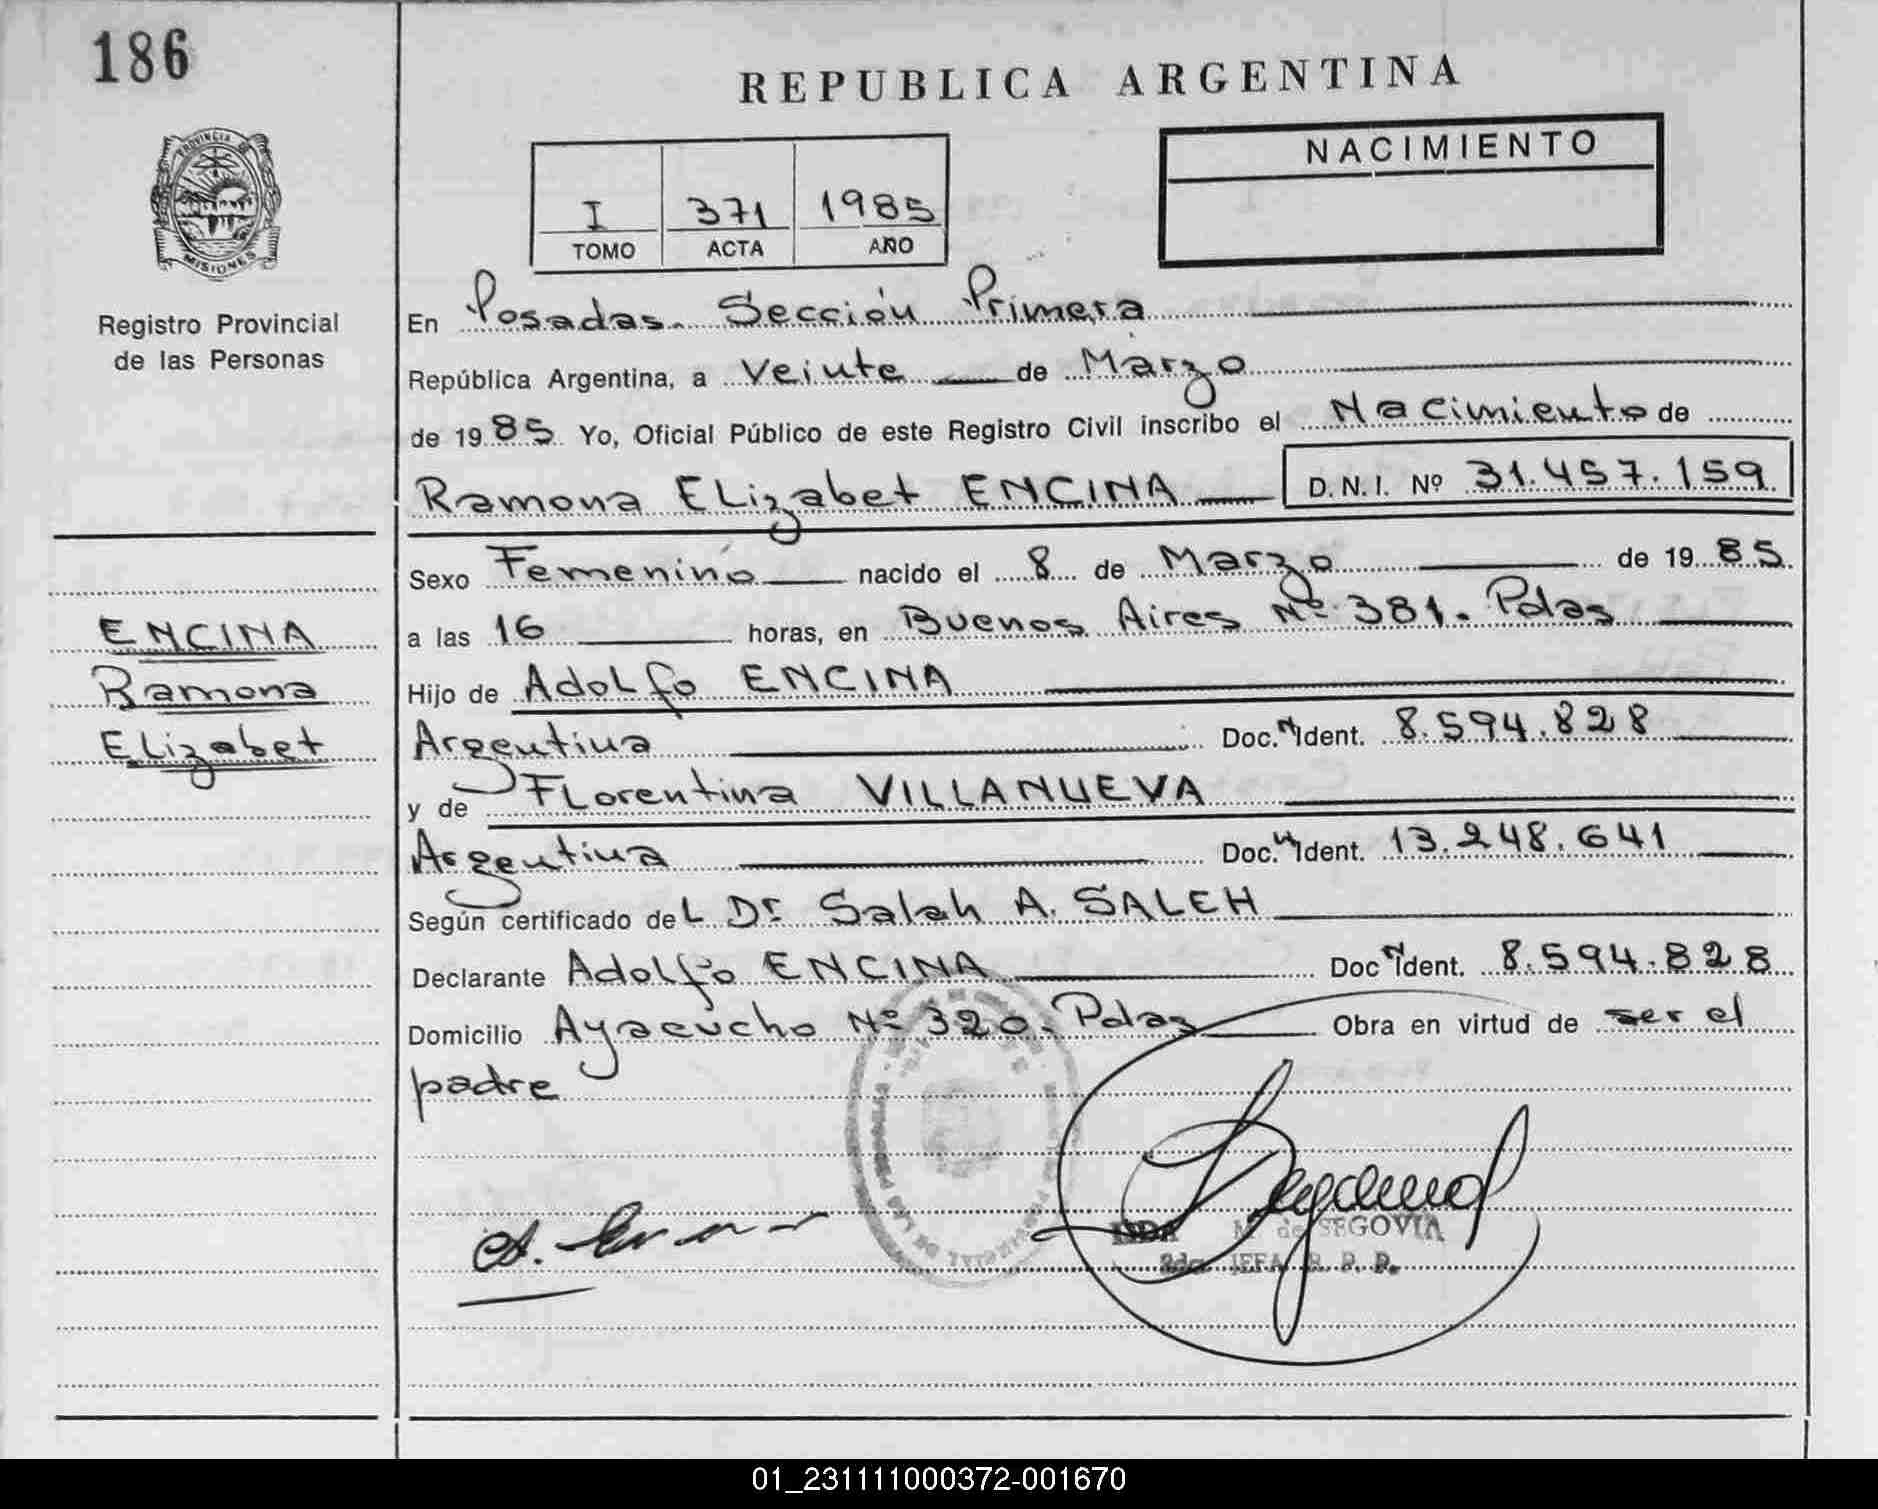 186
REPUBLICA ARGENTINA
PROVINCIA DE
MISIONES
Registro Provincial
de las Personas
NACIMIENTO
I 371 1985
TOMO ACTA AÑO
En Posadas. Sección Primera
República Argentina, a Veinte de Marzo
de 1985 Yo, Oficial Público de este Registro Civil inscribo el Nacimiento de
Ramona ELizabet ENCINA D.N.I. Nº 31.457.159
Sexo Femenino nacido el 8 de Marzo de 1985
ENCINA
Ramona
ELizabet
a las 16 horas, en Buenos Aires Nº 381. Pdas
Hijo de AdoLfo ENCINA
Argentina Doc. N Ident. 8.594.828
y de FLorentina VILLANUEVA
Argentina Doc. N Ident. 13.248.641
Según certificado deL Dr. Salah A. SALEH
Declarante AdoLfo ENCINA Doc N Ident. 8.594.828
Domicilio Ayacucho Nº 320. Pdas Obra en virtud de ser el
padre
M. de SEGOVIA
JEFA R. P. P.
01_231111000372-001670